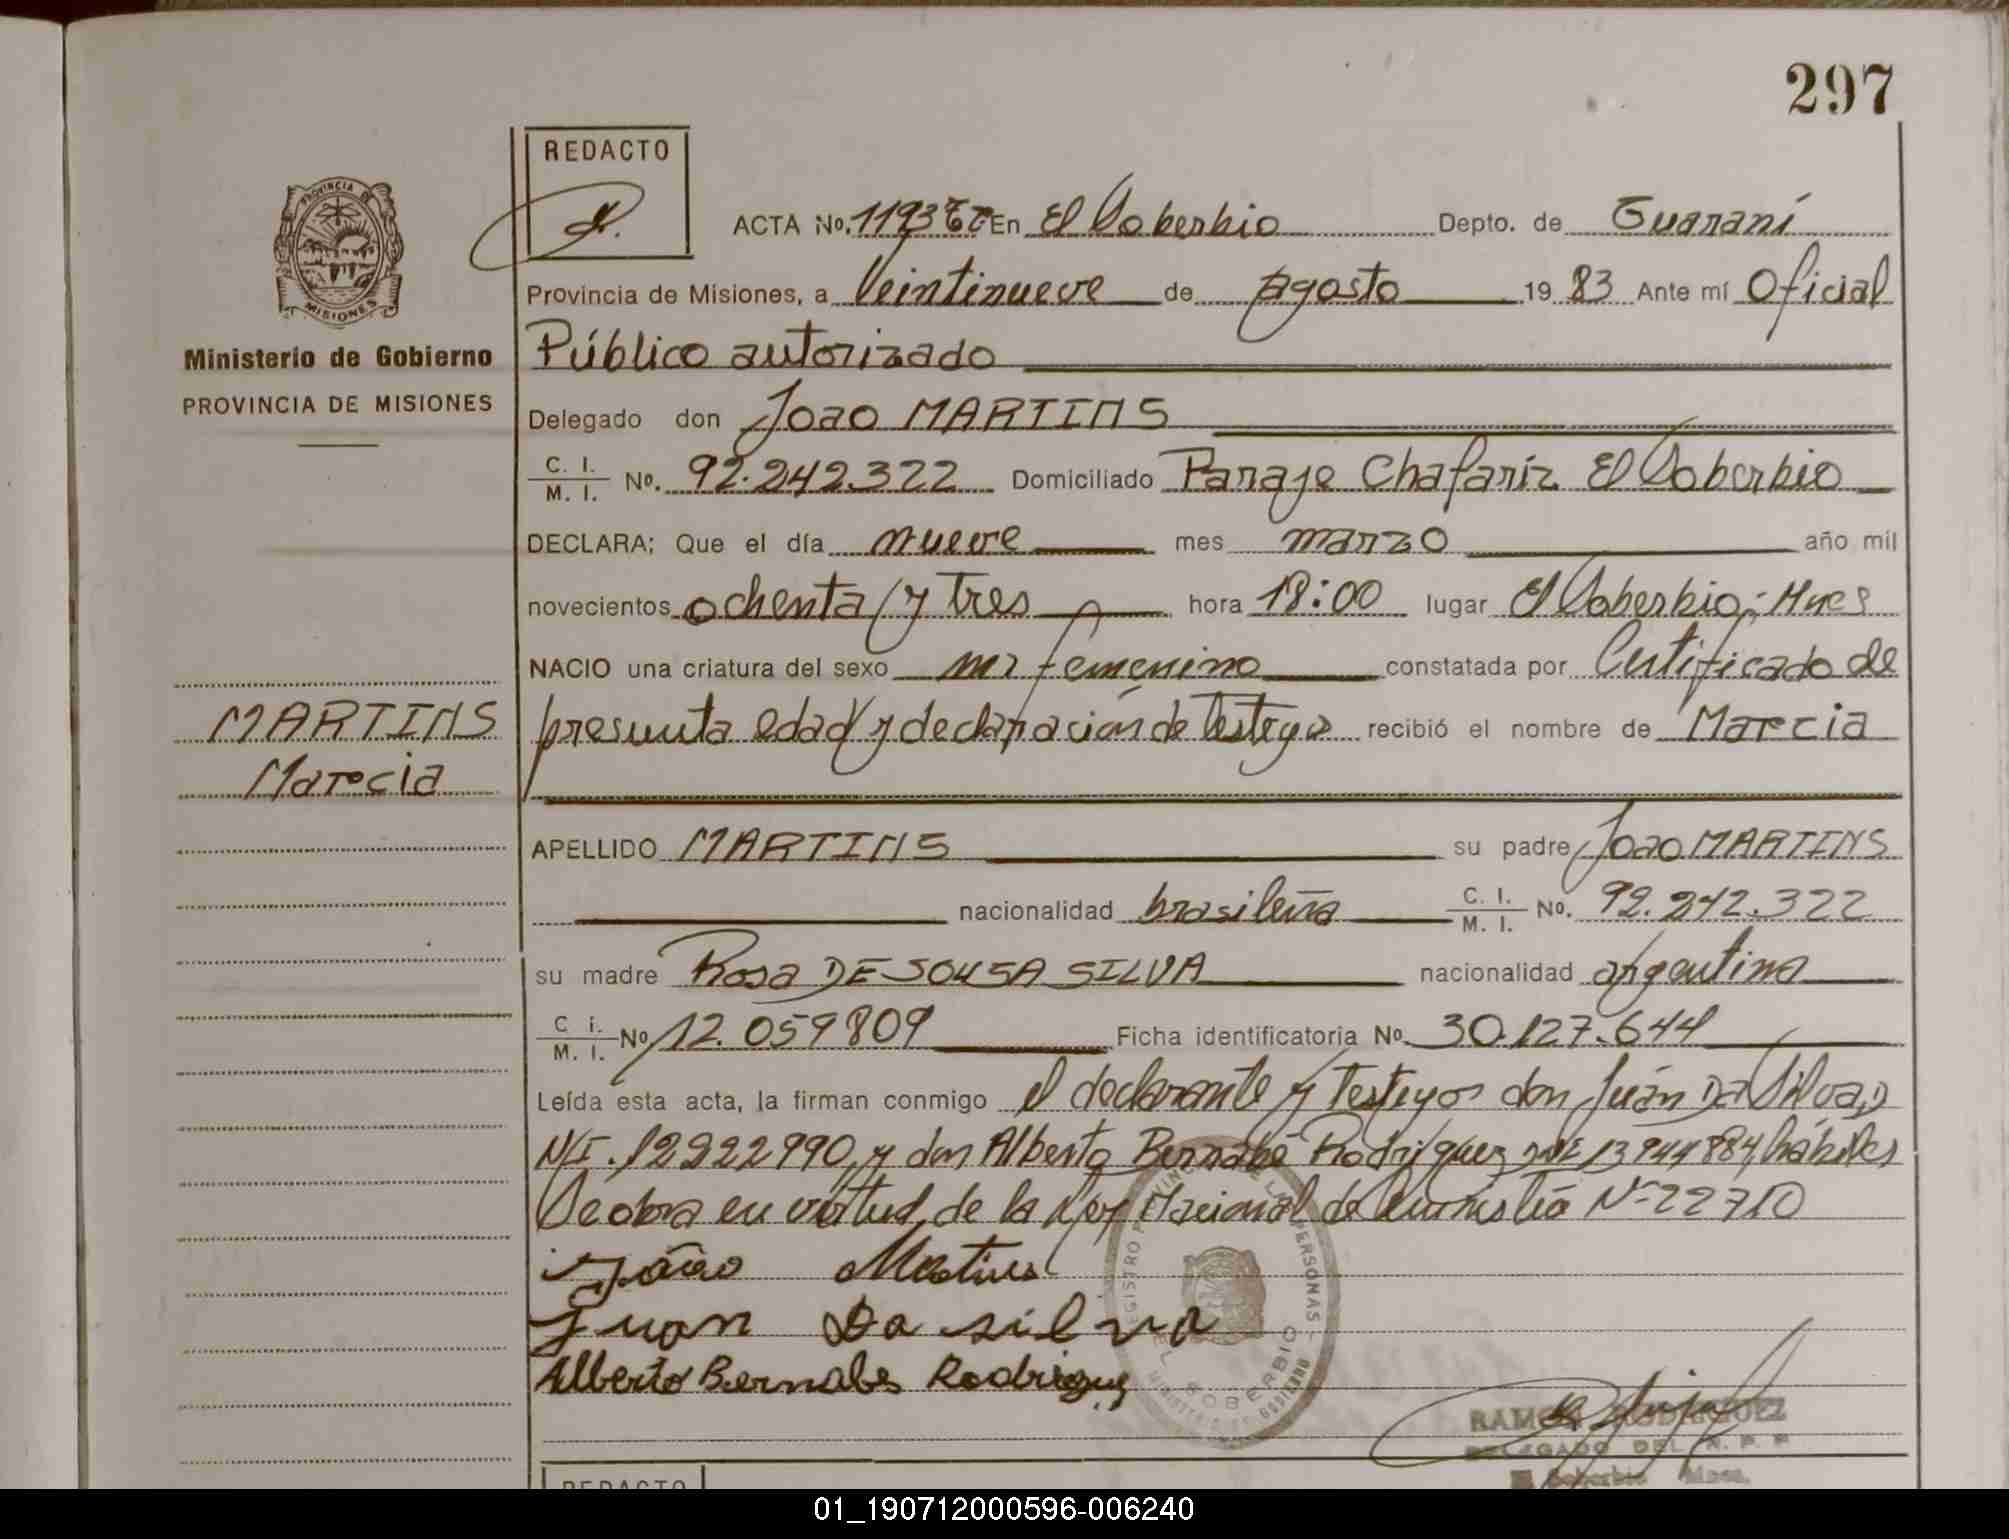 297
REDACTO
PROVINCIA DE
MISIONES
ACTA No. 1193 En El Soberbio Depto. de Guaraní
Provincia de Misiones, a Veintinueve de agosto 19 83 Ante mí Oficial
Ministerio de Gobierno
Público autorizado
PROVINCIA DE MISIONES
Delegado don Joao MARTINS
C. I. M. I. No. 92.242.322 Domiciliado Paraje Chafaríz El Soberbio
DECLARA; Que el día nueve mes marzo año mil
novecientos ochenta y tres hora 18:00 lugar El Soberbio; Mnes
NACIO una criatura del sexo femenino constatada por Certificado de
MARTINS
presunta edad y declaración de Testigos recibió el nombre de Marcia
Marcia
APELLIDO MARTINS su padre Joao MARTINS
nacionalidad brasileña C. I. M. I. No. 92.242.322
su madre Rosa DE SOUSA SILVA nacionalidad argentina
C i. M. I. No 12.059809 Ficha identificatoria No. 30.127.644
Leída esta acta, la firman conmigo el declarante y Testigos don Juán Da Silva, D
NI. 12922990, y don Alberto Bernabé Rodriguez DNI 13944884, hábiles
Se obra en virtud de la Ley Nacional de Amnistía Nº 22710
João Martins
Juan Da silva
Alberto Bernabe Rodriguez
EL SOBERBIO
RAMON RODRIGUEZ
DELEGADO DEL R. P. P
El Soberbio Mnes.
REDACTO
01_190712000596-006240